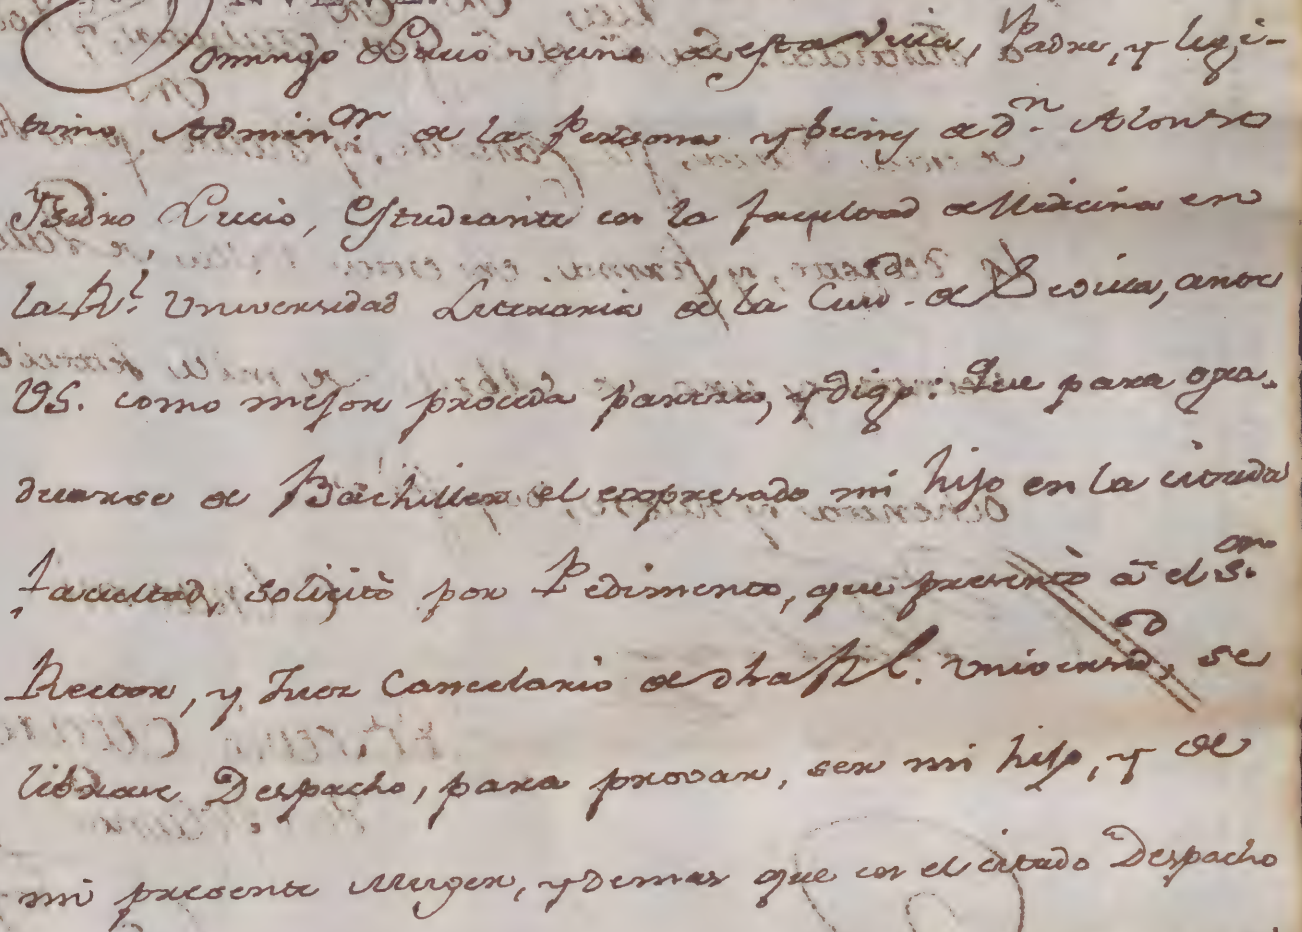 Domingo Lucio vecino de esta Villa, Padre, y legi-
timo Admin.or de la Persona y bienes de d.n Alonso
Isidro Lucio, Estudiante en la facultad de Medicina en
la R.l Universidad Literaria de la Ciud.d de Sevilla, ante
VS. como mejor proceda parezco, y digo: Que para gra-
duarse de Bachiller el expresado mi hijo en la citada
facultad, solicitò por Pedimento, que presentò à el S.or
Rector, y Juez Cancelario de dha R.l Universid.d, se
librase Despacho, para provar, ser mi hijo, y de
mi presente Muger, y demas que en el citado Despacho